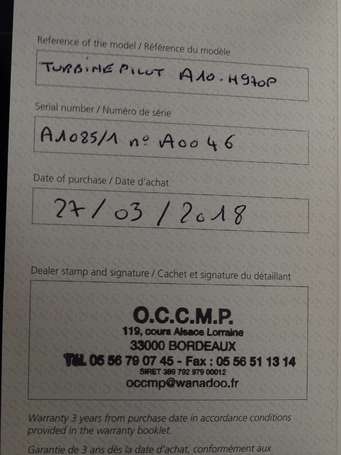 Reference of the model / Référence du modèle
TURBINE PILOT A10.H970P
Serial number / Numéro de série
A1085/1 n° A0046
Date of purchase / Date d'achat
27/03/2018
Dealer stamp and signature / Cachet et signature du détaillant
O.C.C.M.P.
119, cours Alsace Lorraine
33000 BORDEAUX
Tél. 05 56 79 07 45 - Fax : 05 56 51 13 14
SIRET 389 792 979 00012
occmp@wanadoo.fr
Warranty 3 years from purchase date in accordance conditions
provided in the warranty booklet.
Garantie de 3 ans dès la date d'achat, conformément aux